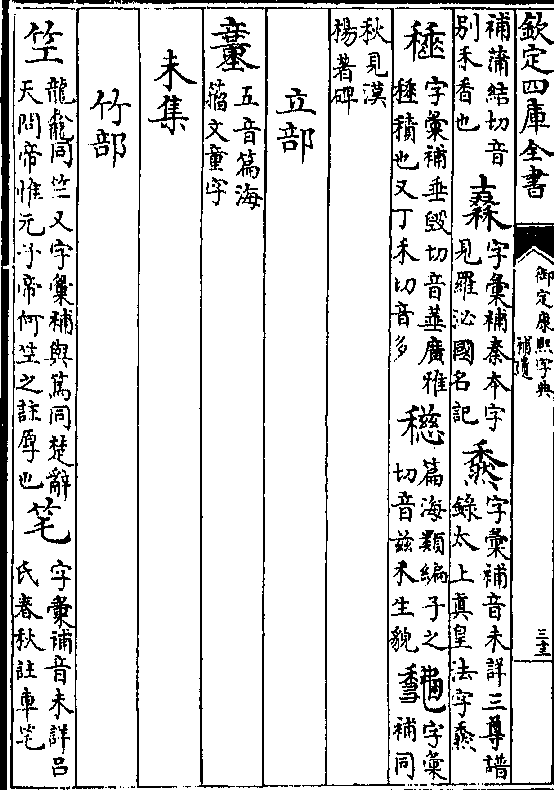 欽定四庫全書
御定康熙字典
補遺
補蒲結切音
别禾香也
字彙補秦本字
見羅泌國名記
字彙補音未詳三尊譜
錄太上真皇法字
字彙補垂毀切音菙廣雅
積也又丁禾切音多
篇海類編子之
切音兹禾生貌
字彙
補同
秋見漢
楊著碑
立部
五音篇海
籀文童字
未集
竹部
笁
龍龕同竺又字彙補與篤同楚辭
天問帝惟元子帝何笁之註厚也
笔
字彙補音未詳吕
氏春秋註車笔